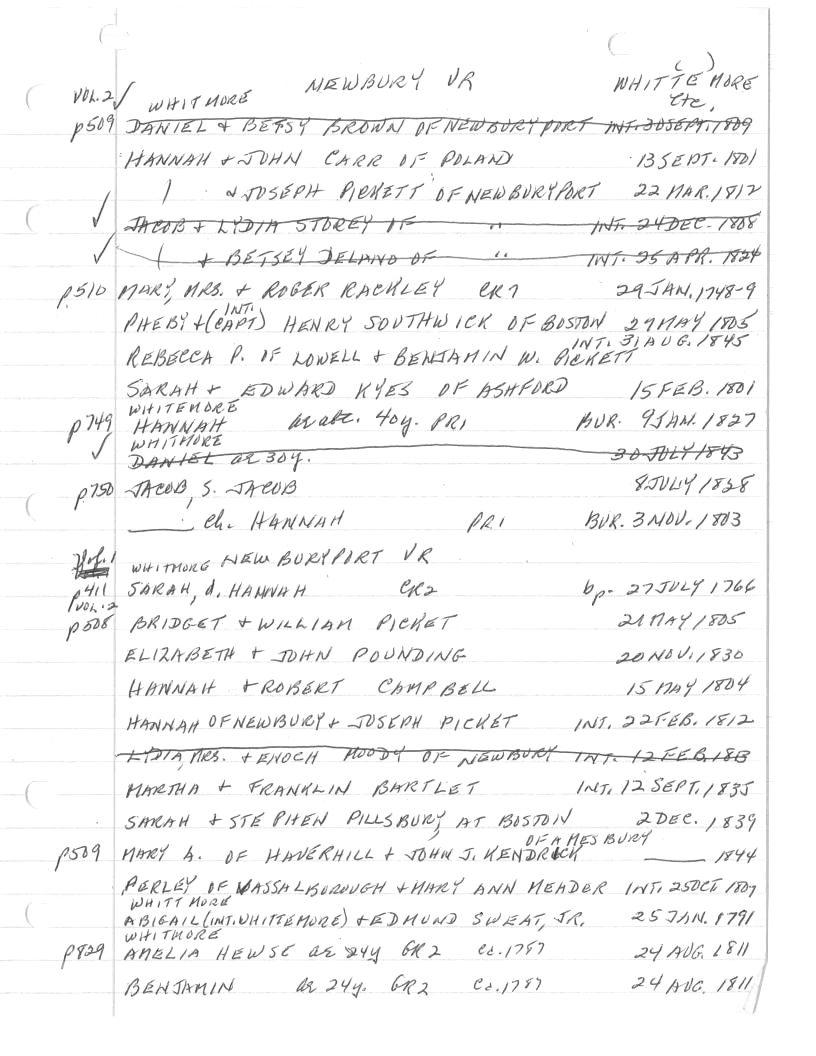 NEWBURY VR WHITTEMORE ( )
VOL. 2 ✓ WHITMORE etc.
p509 DANIEL + BETSY BROWN OF NEWBURYPORT INT. 30 SEPT. 1809
HANNAH + JOHN CARR OF POLAND 13 SEPT. 1801
| + JOSEPH PICKETT OF NEWBURYPORT 22 MAR. 1812
✓ JACOB + LYDIA STOREY OF " INT. 24 DEC. 1808
✓ | + BETSEY DELAND OF " INT. 25 APR. 1824
p.510 MARY, MRS. + ROGER RACKLEY CR7 29 JAN. 1748-9
INT.
PHEBY + (CAPT) HENRY SOUTHWICK OF BOSTON 29 MAY 1805
INT. 31 AUG. 1845
REBECCA P. OF LOWELL + BENJAMIN W. PICKETT
SARAH + EDWARD KYES OF ASHFORD 15 FEB. 1801
WHITEMORE
p749 HANNAH ae abt. 40y. PR1 BUR. 9 JAN. 1827
WHITMORE
✓ DANIEL ae 30y. 30 JULY 1843
p.750 JACOB, S. JACOB 8 JULY 1828
____ ch. HANNAH PR1 BUR. 3 NOV. 1803
Vol. 1 WHITMORE NEWBURYPORT VR
p411 SARAH, d. HANNAH CR2 bp. 27 JULY 1766
VOL. 2
p508 BRIDGET + WILLIAM PICKET 21 MAY 1805
ELIZABETH + JOHN POUNDING 20 NOV. 1830
HANNAH + ROBERT CAMPBELL 15 MAY 1804
HANNAH OF NEWBURY + JOSEPH PICKET INT. 22 FEB. 1812
LYDIA, MRS. + ENOCH MOODY OF NEWBURY INT. 12 FEB.
MARTHA + FRANKLIN BARTLET INT. 12 SEPT. 1835
SARAH + STEPHEN PILLSBURY, AT BOSTON 2 DEC. 1839
OF AMESBURY
p509 MARY A. OF HAVERHILL + JOHN J. KENDRICK ____ 1844
PERLEY OF VASSALBOROUGH + MARY ANN MEADER INT. 25 OCT 1807
WHITTMORE
ABIGAIL (INT. WHITTEMORE) + EDMUND SWEAT, JR. 25 JAN. 1791
WHITMORE
p829 AMELIA HEWSE ae 24y GR2 Ca. 1787 24 AUG. 1811
BENJAMIN ae 24y. GR2 Ca. 1787 24 AUG. 1811